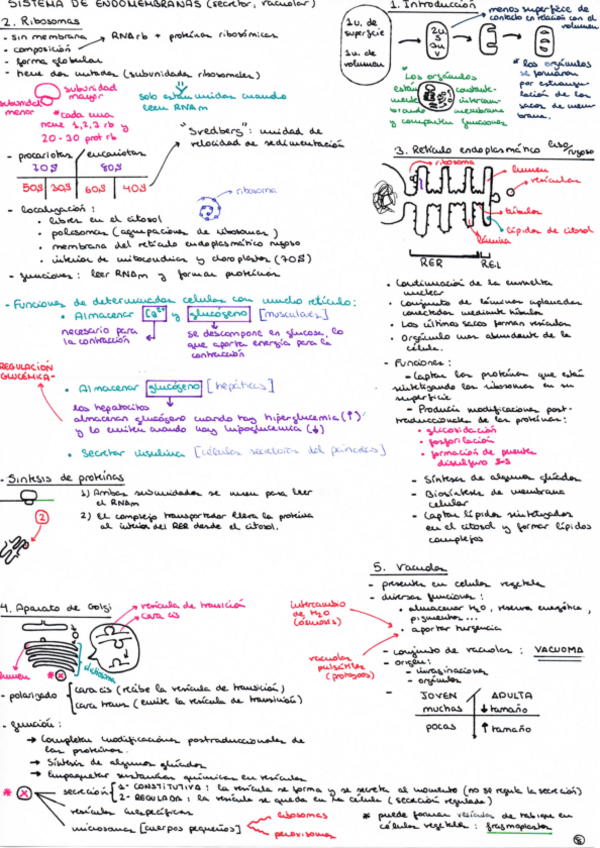 SISTEMA DE ENDOMEMBRANAS (secretor, vacuolar)
2. Ribosomas
- sin membrana
- composición → RNArb + proteínas ribosómicas
- forma globular
- tiene dos mitades (subunidades ribosomales)
subunidad mayor
subunidad menor
*cada una tiene 1,2,3 rb y 20-30 prot rb
solo están unidas cuando leen RNAm
"Svedberg": unidad de velocidad de sedimentación
- procariotas / eucariotas
70S 80S
50S 30S 60S 40S
→ ribosoma
- localización:
• libres en el citosol
• polisomas (agrupaciones de ribosomas)
• membrana del retículo endoplasmático rugoso
• interior de mitocondrias y cloroplastos (70S)
- funciones: leer RNAm y formar proteínas
- Funciones de determinadas células con mucho retículo:
• Almacenar Ca2+ y glucógeno [musculares]
necesario para la contracción
se descompone en glucosa, lo que aporta energía para la contracción
REGULACIÓN GLUCÉMICA
• Almacenar glucógeno [hepáticas]
los hepatocitos almacenan glucógeno cuando hay hiperglucemia (↑) y lo emiten cuando hay hipoglucemia (↓)
• Secretar insulina [células secretoras del páncreas]
- Síntesis de proteínas
1) Ambas subunidades se unen para leer el RNAm
2
2) El complejo transportador lleva la proteína al interior del RER desde el citosol.
4. Aparato de Golgi
vesícula de transición
cara cis
lumen
dictiosoma
- polarizado
cara cis (recibe la vesícula de transición)
cara trans (emite la vesícula de transición)
- función:
→ Completan modificaciones postraduccionales de las proteínas.
→ Síntesis de algunos glúcidos
→ Empaquetar sustancias químicas en vesículas
* x
secreción
1- CONSTITUTIVA: la vesícula se forma y se secreta al momento (no se regula la secreción)
2- REGULADA: la vesícula se queda en la célula (secreción regulada)
vesículas inespecíficas
microsomas [cuerpos pequeños]
lisosomas
peroxisomas
1. Introducción
1u. de superficie
1u. de volumen
menos superficie de contacto en relación con el volumen
*Los orgánulos están constantemente intercambiando membrana y comparten funciones
*los orgánulos se formaron por estrangulación de los sacos de membrana.
3. Retículo endoplasmático liso rugoso
ribosoma
lumen
vesículas
túbulos
lípidos de citosol
lámina
RER REL
• Continuación de la envuelta nuclear
• Conjunto de láminas aplanadas conectadas mediante túbulos
• Los últimos sacos forman vesículas
• Orgánulo más abundante de la célula.
- Funciones:
- Captar las proteínas que están sintetizando los ribosomas en su superficie
- Producir modificaciones post-traduccionales de las proteínas:
• glucosidación
• fosforilación
• formación de puentes disulfuro S-S
- Síntesis de algunos glúcidos
- Biosíntesis de membrana celular
- Captan lípidos sintetizados en el citosol y forman lípidos complejos
5. Vacuolas
- presentes en células vegetales
- diversas funciones:
• almacenar H2O, reserva energética, pigmentos...
• aportar turgencia
intercambio de H2O (ósmosis)
vacuolas pulsátiles (protozoos)
- conjunto de vacuolas: VACUOMA
- origen:
- invaginaciones
- orgánulos
- JOVEN ADULTA
muchas ↓ tamaño
pocas ↑ tamaño
* puede formar vesículas de tabique en células vegetales: fragmoplastos